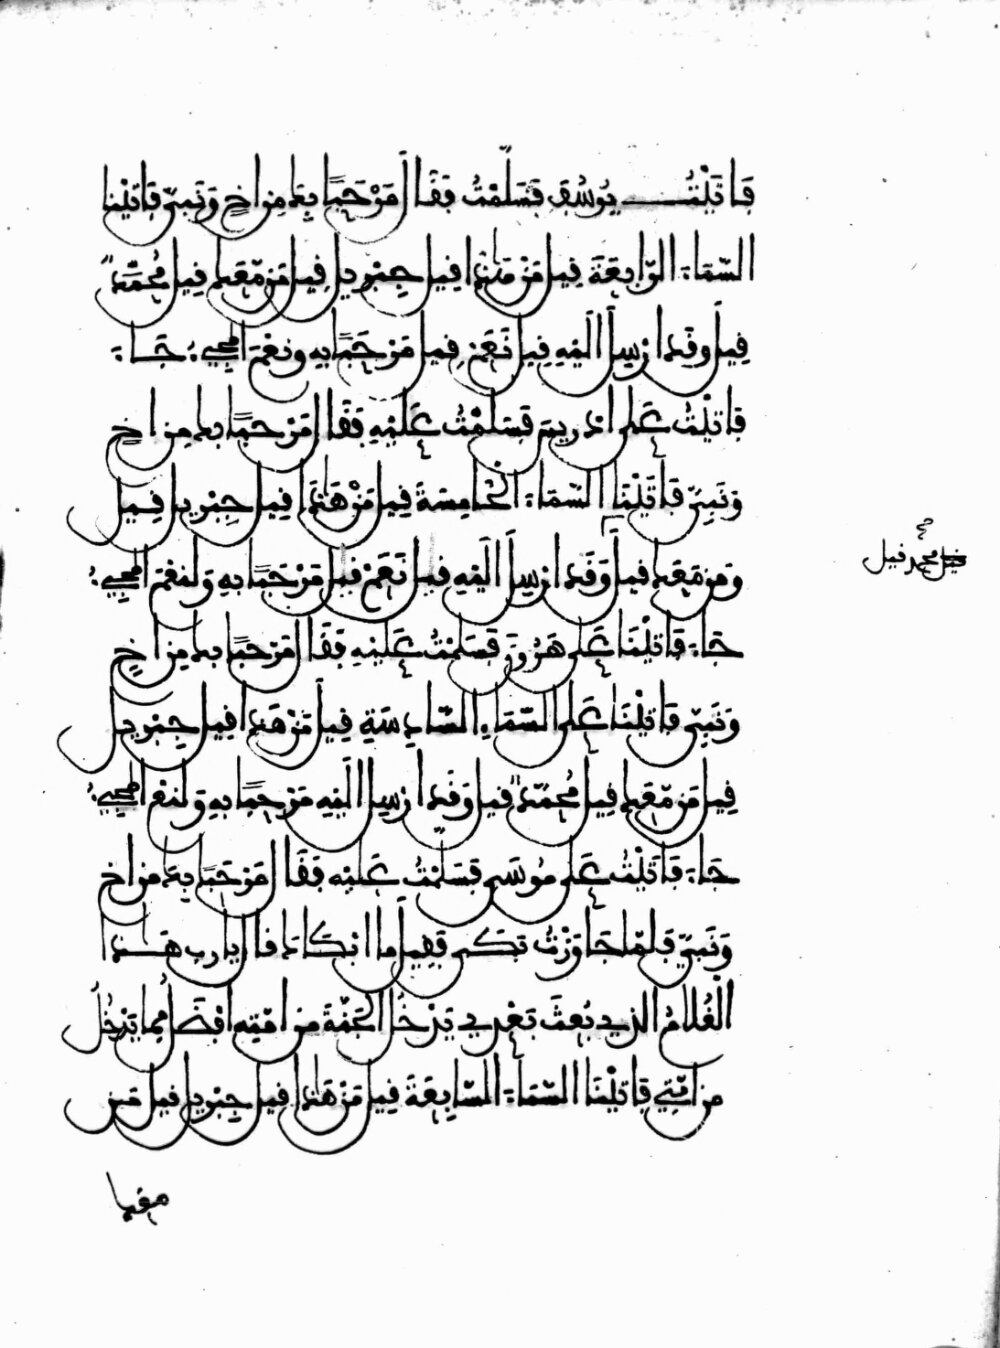 فَأَتَيْتُ يُوسُفَ فَسَلَّمْتُ فَقَالَ مَرْحَبًا بِكَ مِنْ أَخٍ وَنَبِيٍّ فَأَتَيْنَا
السَّمَاءَ الرَّابِعَةَ قِيلَ مَنْ هَذَا قِيلَ جِبْرِيلُ قِيلَ مَنْ مَّعَكَ قِيلَ مُحَمَّدٌ
قِيلَ وَقَدْ أُرْسِلَ إِلَيْهِ قِيلَ نَعَمْ قِيلَ مَرْحَبًا بِهِ وَنِعْمَ الْمَجِيءُ جَاءَ
فَأَتَيْتُ عَلَى إِدْرِيسَ فَسَلَّمْتُ عَلَيْهِ فَقَالَ مَرْحَبًا بِكَ مِنْ أَخٍ
وَنَبِيٍّ فَأَتَيْنَا السَّمَاءَ الْخَامِسَةَ قِيلَ مَنْ هَذَا قِيلَ جِبْرِيلُ قِيلَ
وَمَنْ مَعَكَ قِيلَ وَقَدْ أُرْسِلَ إِلَيْهِ قِيلَ نَعَمْ قِيلَ مَرْحَبًا بِهِ وَلَنِعْمَ الْمَجِيءُ
قيل محمد قيل
جَاءَ فَأَتَيْنَا عَلَى هَرُونَ فَسَلَّمْتُ عَلَيْهِ فَقَالَ مَرْحَبًا بِكَ مِنْ أَخٍ
وَنَبِيٍّ فَأَتَيْنَا عَلَى السَّمَاءِ السَّادِسَةِ قِيلَ مَنْ هَذَا قِيلَ جِبْرِيلُ
قِيلَ مَن مَّعَكَ قِيلَ مُحَمَّدٌ قِيلَ وَقَدْ أُرْسِلَ إِلَيْهِ مَرْحَبًا بِهِ وَلَنِعْمَ الْمَجِيءُ
جَاءَ فَأَتَيْتُ عَلَى مُوسَى فَسَلَّمْتُ عَلَيْهِ فَقَالَ مَرْحَبًا بِكَ مِنْ أَخٍ
وَنَبِيٍّ فَلَمَّا جَاوَزْتُ بَكَى فَقِيلَ مَا أَبْكَاكَ قَالَ يَا رَبِّ هَذَا
الْغُلَامُ الَّذِي بُعِثَ بَعْدِي يَدْخُلُ الْجَنَّةَ مِنْ أُمَّتِهِ أَفْضَلُ مِمَّا يَدْخُلُ
مِنْ أُمَّتِي فَأَتَيْنَا السَّمَاءَ السَّابِعَةَ قِيلَ مَنْ هَذَا قِيلَ جِبْرِيلُ قِيلَ مَنْ